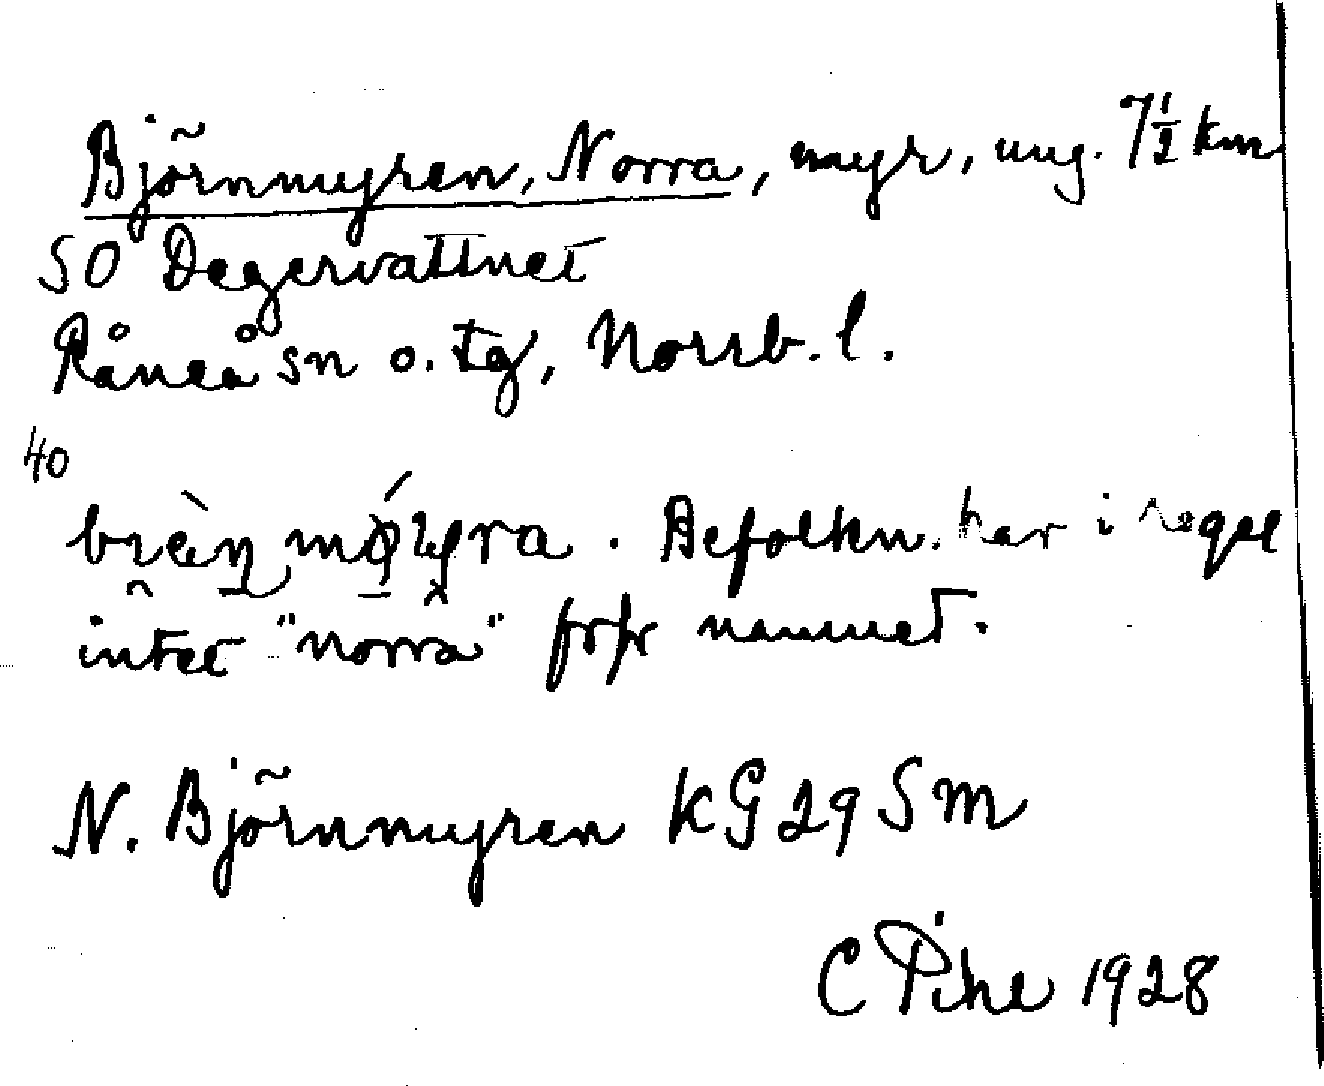 Björnmyren, Norra, myr, ung. 7½ km
SO Degervattnet
Råneå sn o. tg, Norrb. l.
40
Befolkn. har i regel
intet "norra" frfr namnet.
N. Björnmyren KG 29 Sm
C Pihl 1928